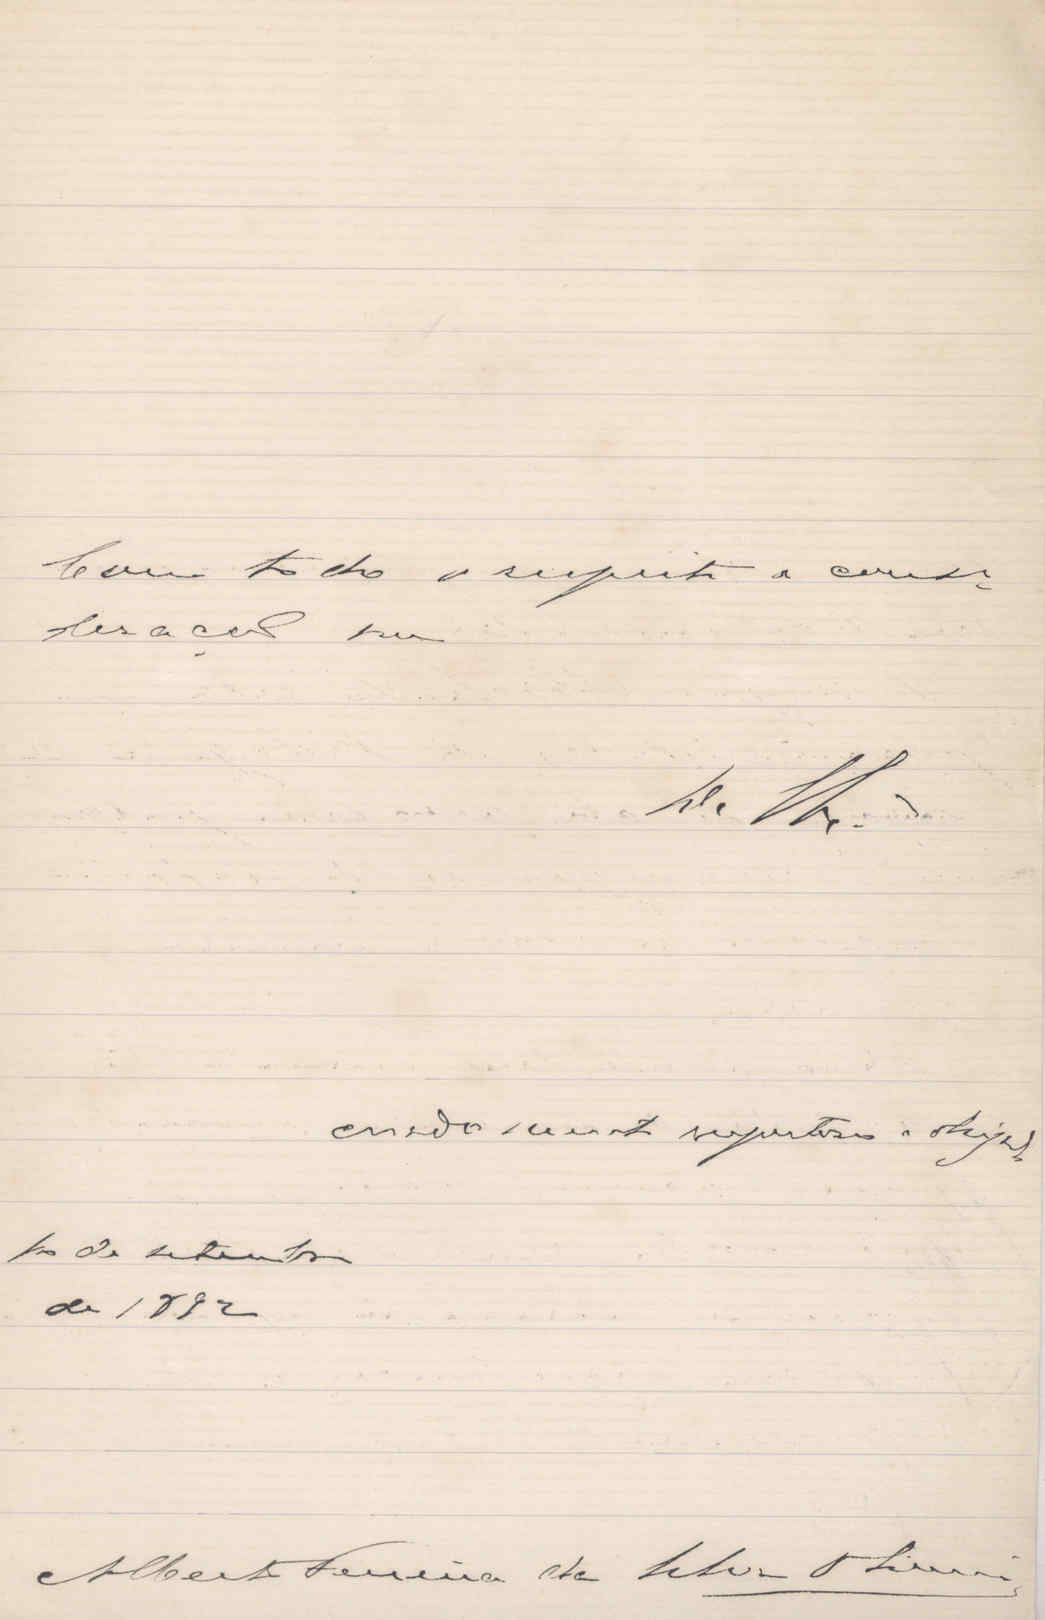 Com todo o respeito e consi-
deração sou
De V. Ex.ª
criado muito respeitoso e obrigd.º
de setembro
de 1892
Alberto Ferreira da Silva Oliveira